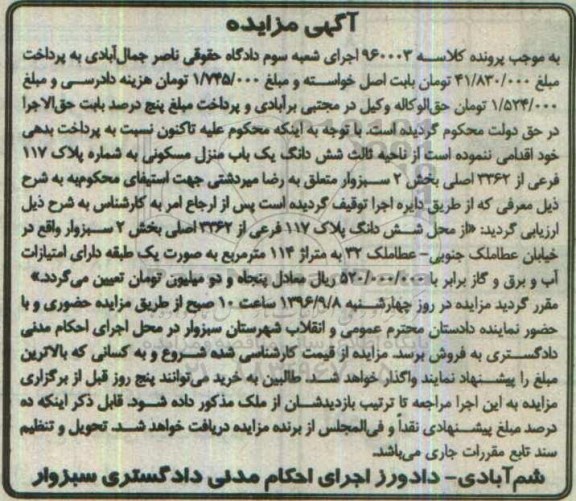 آگهی مزایده
به موجب پرونده کلاسه ۹۶۰۰۰۳ اجرای شعبه سوم دادگاه حقوقی ناصر جمال‌آبادی به پرداخت
مبلغ ۴۱/۸۳۰/۰۰۰ تومان بابت اصل خواسته و مبلغ ۱/۷۴۵/۰۰۰ تومان هزینه دادرسی و مبلغ
۱/۵۲۴/۰۰۰ تومان حق‌الوکاله وکیل در مجتبی برآبادی و پرداخت مبلغ پنج درصد بابت حق‌الاجرا
در حق دولت محکوم گردیده است. با توجه به اینکه محکوم علیه تاکنون نسبت به پرداخت بدهی
خود اقدامی ننموده است از ناحیه ثالث شش دانگ یک باب منزل مسکونی به شماره پلاک ۱۱۷
فرعی از ۳۳۶۲ اصلی بخش ۲ سبزوار متعلق به رضا میردشتی جهت استیفای محکوم‌به به شرح
ذیل معرفی که از طریق دایره اجرا توقیف گردیده است پس از ارجاع امر به کارشناس به شرح ذیل
ارزیابی گردید: «از محل شش دانگ پلاک ۱۱۷ فرعی از ۳۳۶۲ اصلی بخش ۲ سبزوار واقع در
خیابان عطاملک جنوبی- عطاملک ۳۲ به متراژ ۱۱۴ مترمربع به صورت یک طبقه دارای امتیازات
آب و برق و گاز برابر با ۵۲۰/۰۰۰/۰۰۰ ریال معادل پنجاه و دو میلیون تومان تعیین می‌گردد.»
مقرر گردید مزایده در روز چهارشنبه ۱۳۹۶/۹/۸ ساعت ۱۰ صبح از طریق مزایده حضوری و با
حضور نماینده دادستان محترم عمومی و انقلاب شهرستان سبزوار در محل اجرای احکام مدنی
دادگستری به فروش برسد. مزایده از قیمت کارشناسی شده شروع و به کسانی که بالاترین
مبلغ را پیشنهاد نمایند واگذار خواهد شد. طالبین به خرید می‌توانند پنج روز قبل از برگزاری
مزایده به این اجرا مراجعه تا ترتیب بازدیدشان از ملک مذکور داده شود. قابل ذکر اینکه ده
درصد مبلغ پیشنهادی نقداً و فی‌المجلس از برنده مزایده دریافت خواهد شد. تحویل و تنظیم
سند تابع مقررات جاری می‌باشد.
شم‌آبادی- دادورز اجرای احکام مدنی دادگستری سبزوار